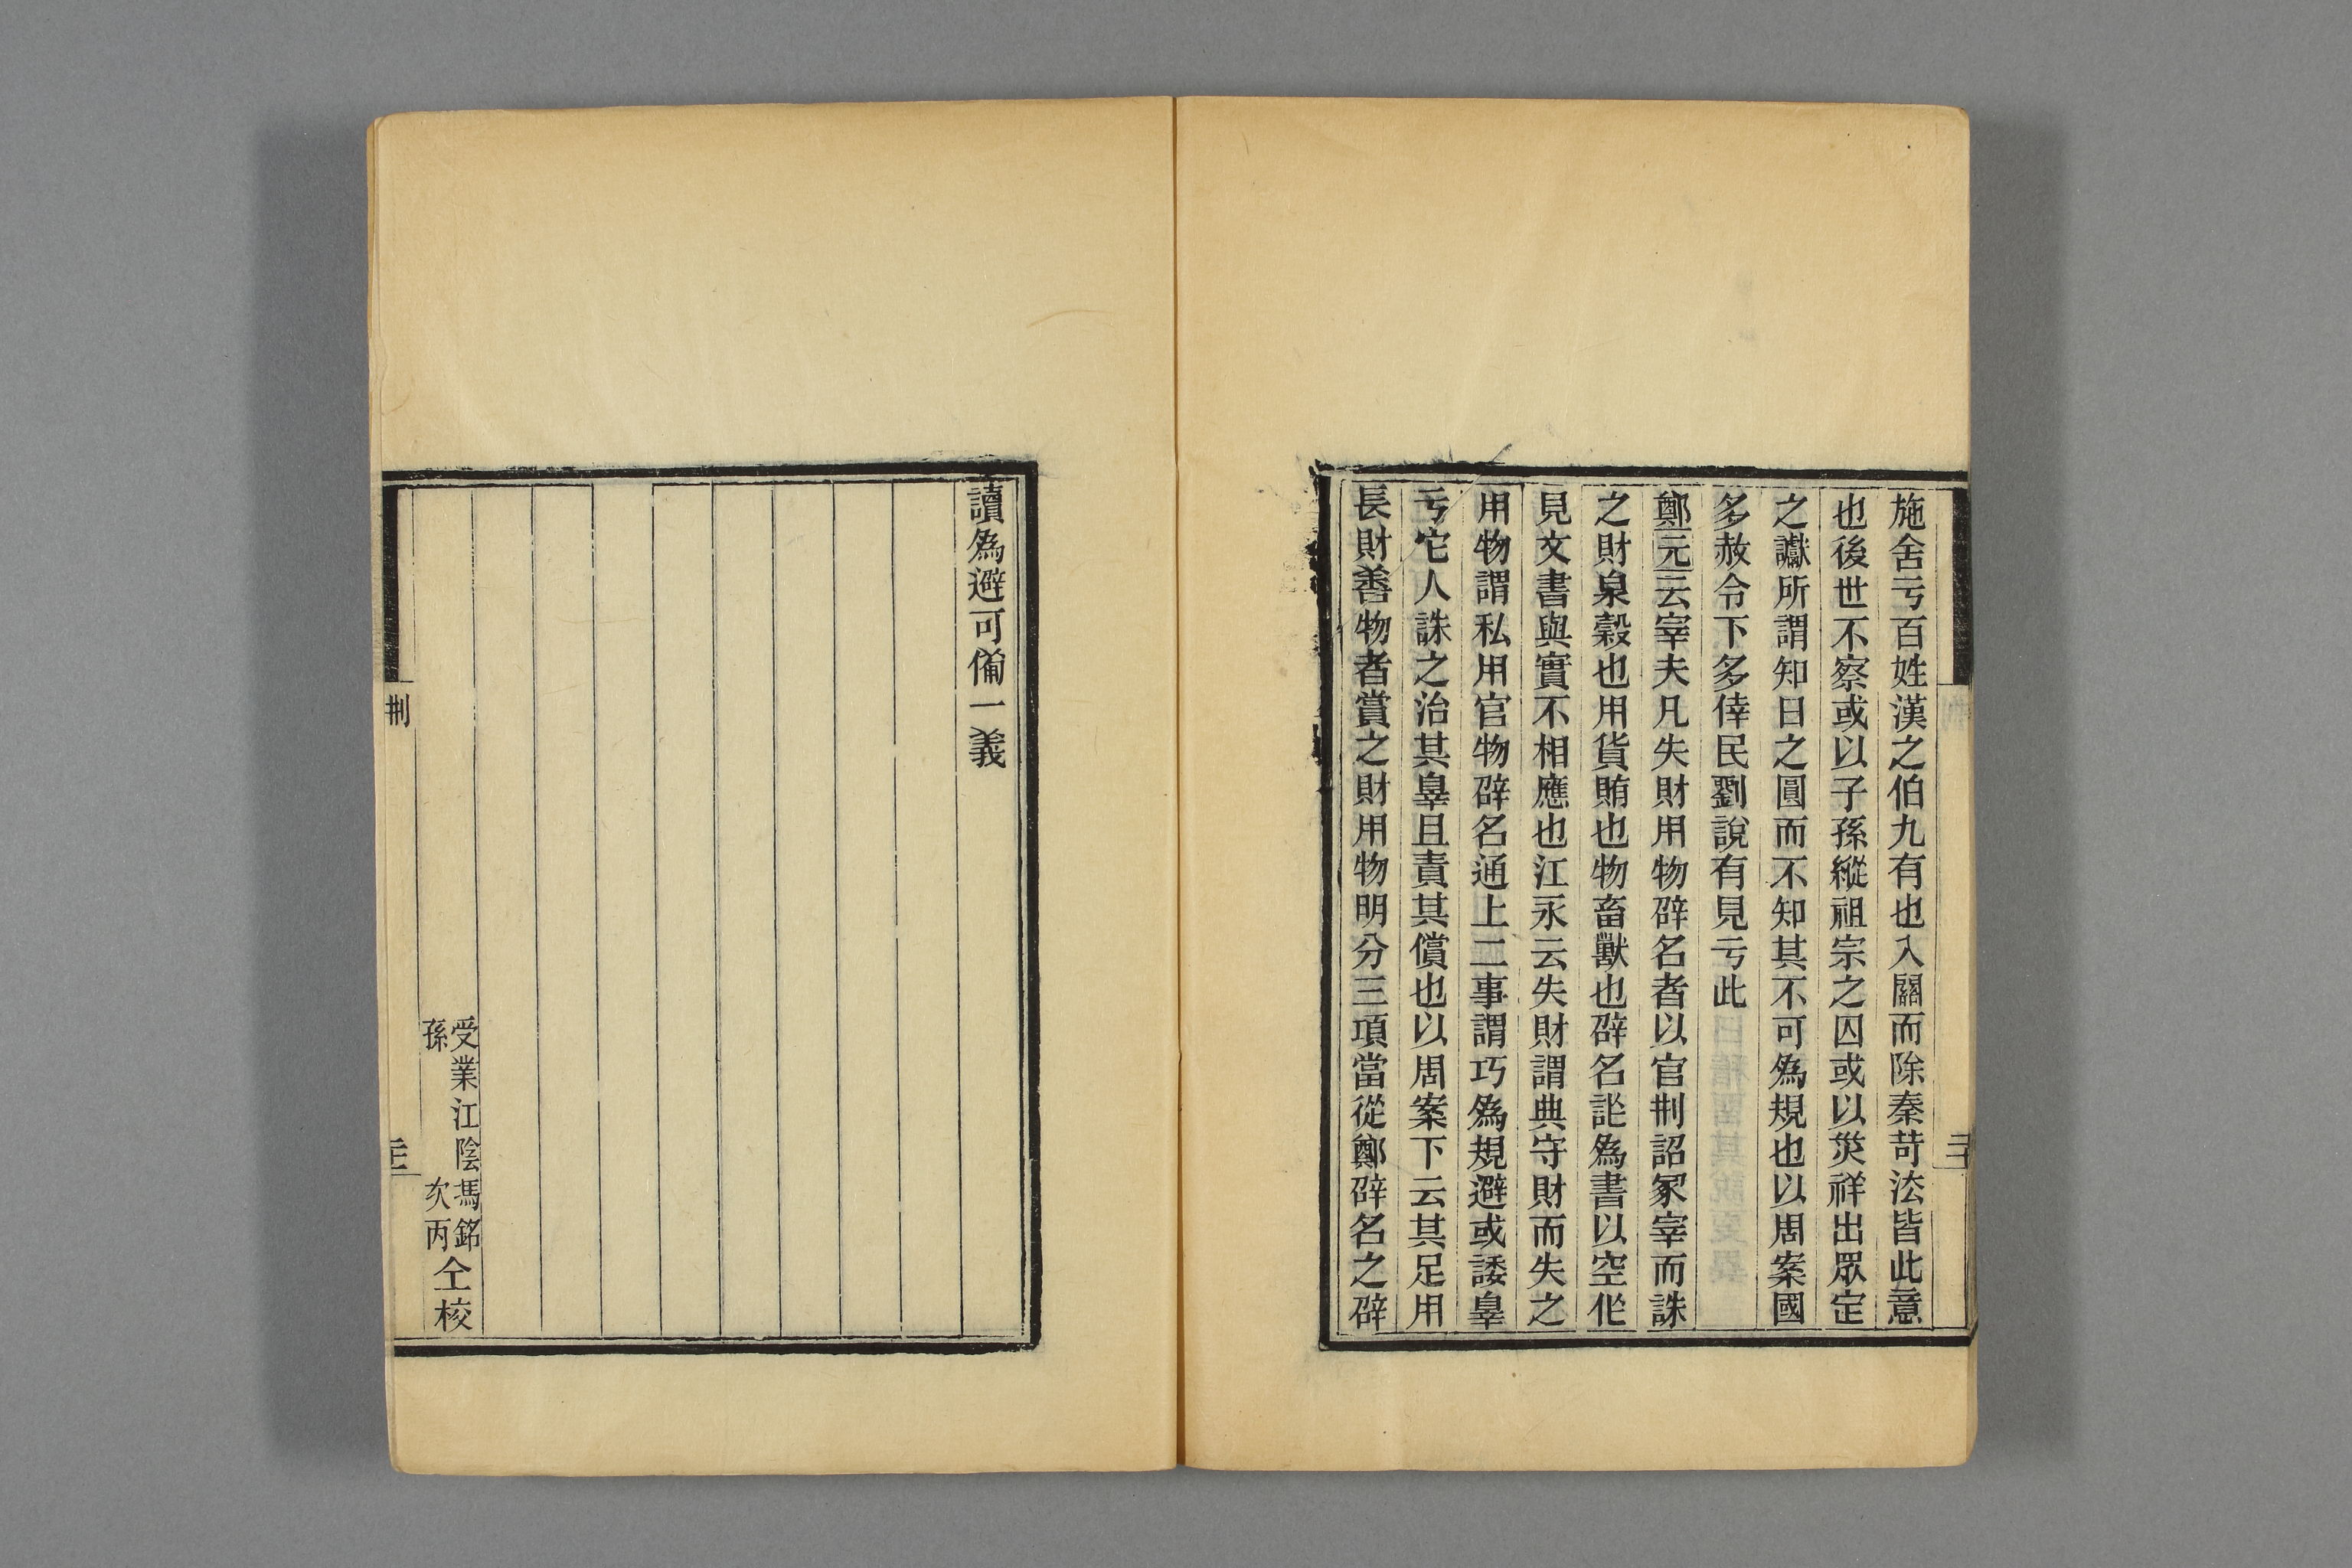 施舍亏百姓漢之伯九有也入關而除秦苛法皆此意
也後世不察或以子孫縱祖宗之囚或以災祥出眾定
之讞所謂知日之圓而不知其不可為規也以周案國
多赦令下多倖民劉說有見亏此
鄭元云宰夫凡失財用物辟名者以官㓝詔冢宰而誅
之財泉穀也用貨賄也物畜獸也辟名詐為書以空作
見文書與實不相應也江永云失財謂典守財而失之
用物謂私用官物辟名通上二事謂巧為規避或諉辠
亏它人誅之治其辠且責其償也以周案下云其足用
長財善物者賞之財用物明分三項當從鄭辟名之辟
讀為避可備一義
受業江陰馮銘
孫次丙
仝校
㓝